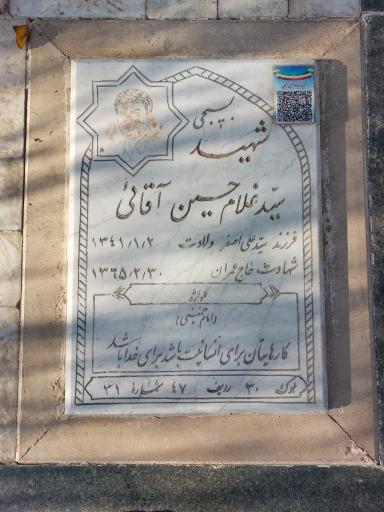 بسیجی
شهید
سیّد غلام حسین آقائی
فرزند سیّد علی اصغر ولادت ۱۳۴۱/۱/۲
شهادت حاج عمران ۱۳۶۵/۲/۳۰
گلواژه
(امام خمینی)
کارهایتان برای انسانیت باشد برای خدا باشد
بلوک ۳۰ ردیف ۴۷ شماره ۳۱